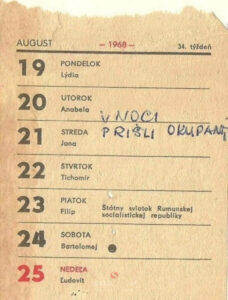 AUGUST - 1968 - 34. týždeň
19 PONDELOK
Lýdia
20 UTOROK
Anabela
V NOCI
21 STREDA PRIŠLI OKUPANTI
Jana
22 ŠTVRTOK
Tichomír
23 PIATOK Štátny sviatok Rumunskej
Filip socialistickej republiky
24 SOBOTA
Bartolomej
25 NEDEĽA
Ľudovít